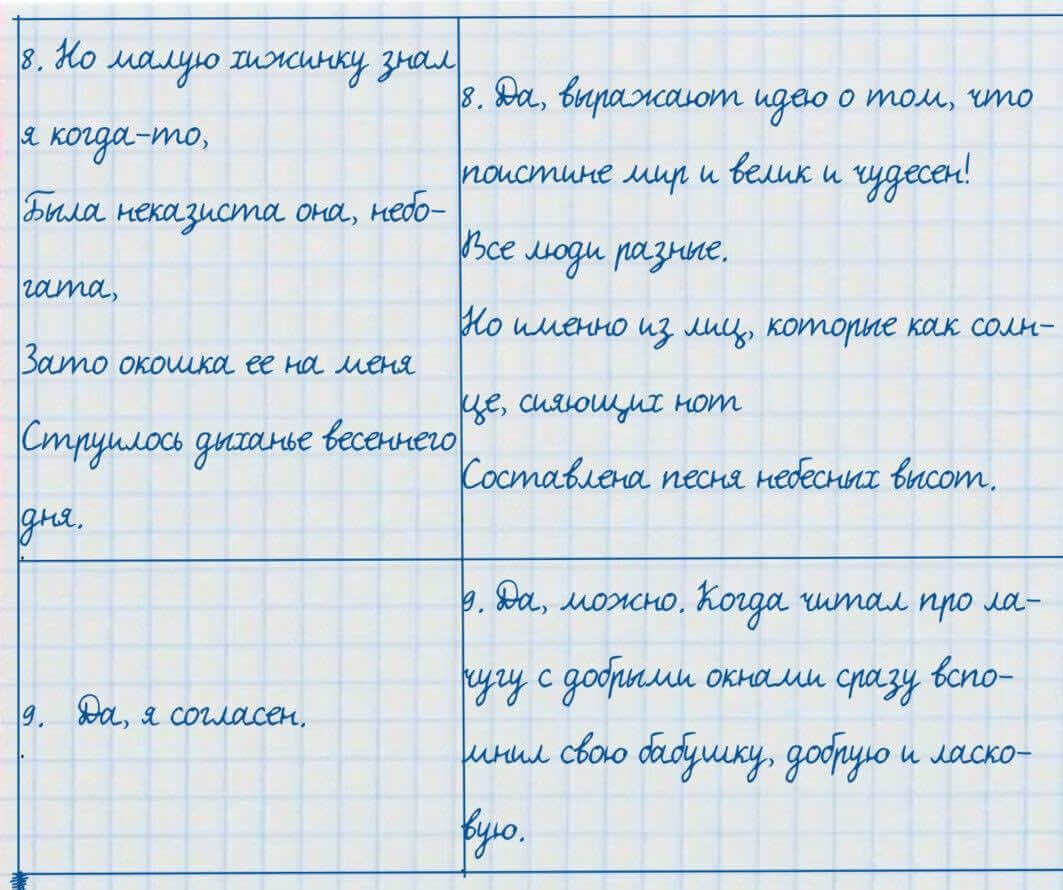 8. Но малую хижинку знал
я когда-то,
Была неказиста она, небо-
гата,
Зато окошка ее на меня
Струилось дыханье весеннего
дня.
8. Да, выражают идею о том, что
поистине мир и велик и чудесен!
Все люди разные.
Но именно из лиц, которые как солн-
це, сияющих нот
Составлена песня небесных высот.
9. Да, я согласен.
9. Да, можно. Когда читал про ла-
чугу с добрыми окнами сразу вспо-
мнил свою бабушку, добрую и ласко-
вую.